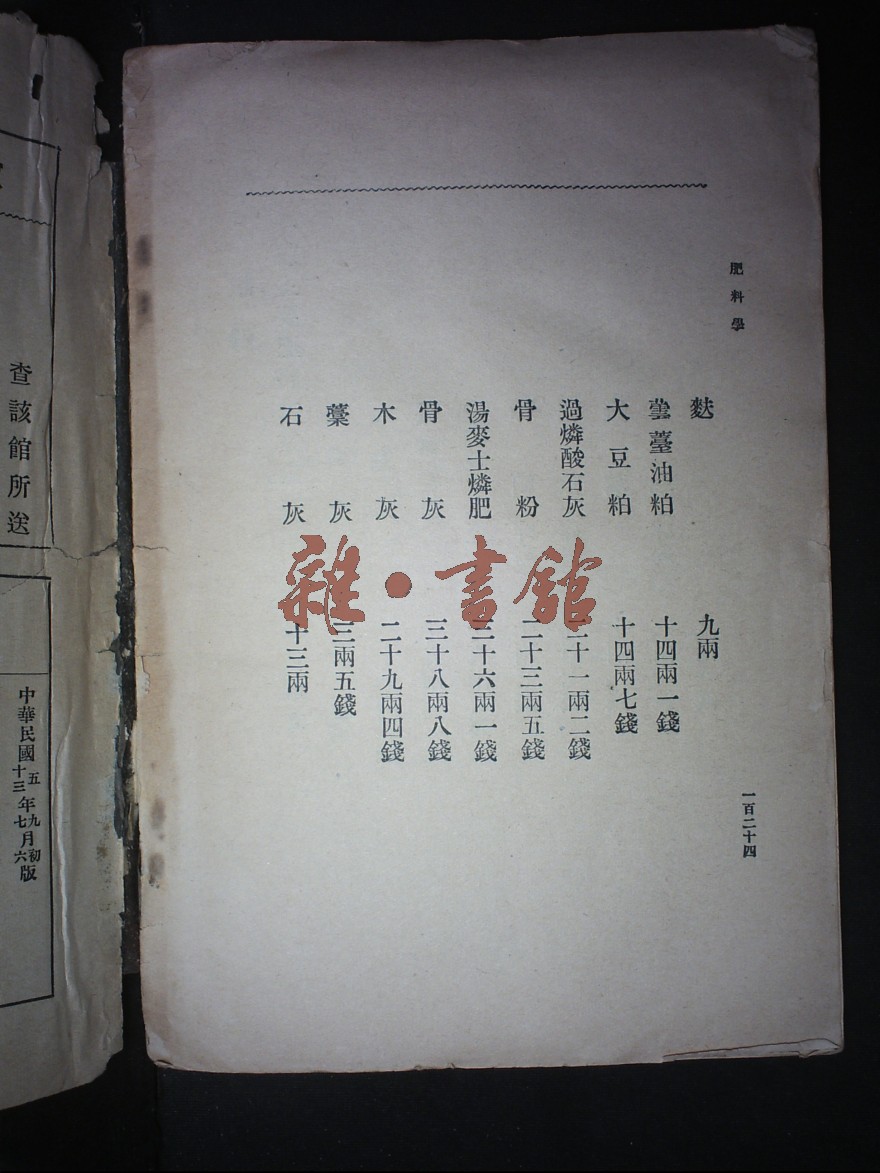 肥料學
麩 九兩
蕓薹油粕 十四兩一錢
大豆粕 十四兩七錢
過燐酸石灰 二十一兩二錢
骨粉 二十三兩五錢
湯麥士燐肥 三十六兩一錢
骨灰 三十八兩八錢
木灰 二十九兩四錢
藁灰 三兩五錢
石灰 十三兩
一百二十四
雜·書館
查該館所送
中華民國五年九月初版
十三年七月六版